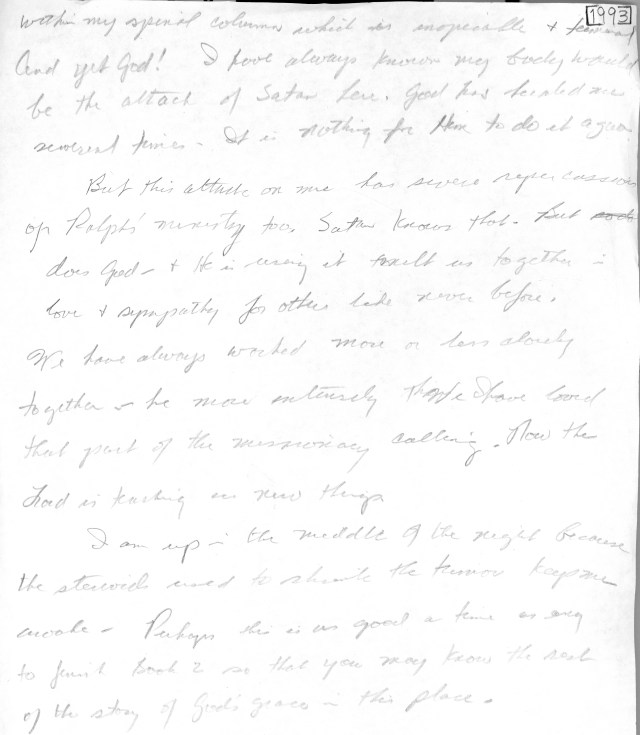 1993
within my spinal column which is inoperable &
And yet God! I have always known my body would
be the attack of Satan here. God has healed me
several times - It is nothing for Him to do it again
But this attack on me has severe repercussions
on Ralph's ministry too. Satan knows that. But
does God - & He is using it to us together in
love & sympathy for others like never before.
We have always worked more or less closely
together - he more intensely I have loved
that part of the missionary calling. Now the
Lord is teaching us new things
I am up in the middle of the night because
the steroids used to shrink the tumor keeps me
awake - Perhaps this is as good a time as any
to finish Book 2 so that you may know the rest
of the story of God's grace in this place.